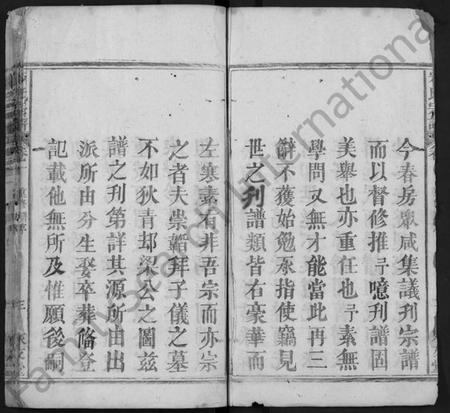 今春房眾咸集議刊宗譜
而以督修推予噫刊譜固
美舉也亦重任也予素無
學問又無才能當此再三
辭不獲始勉承指使竊見
世之刋譜類皆右豪華而
左寒素有非吾宗而亦宗
之者夫崇韜拜子儀之墓
不如狄青却梁公之圖茲
譜之刋第詳其源所由出
派所由分生娶卒葬俻登
記載他無所及惟願後嗣